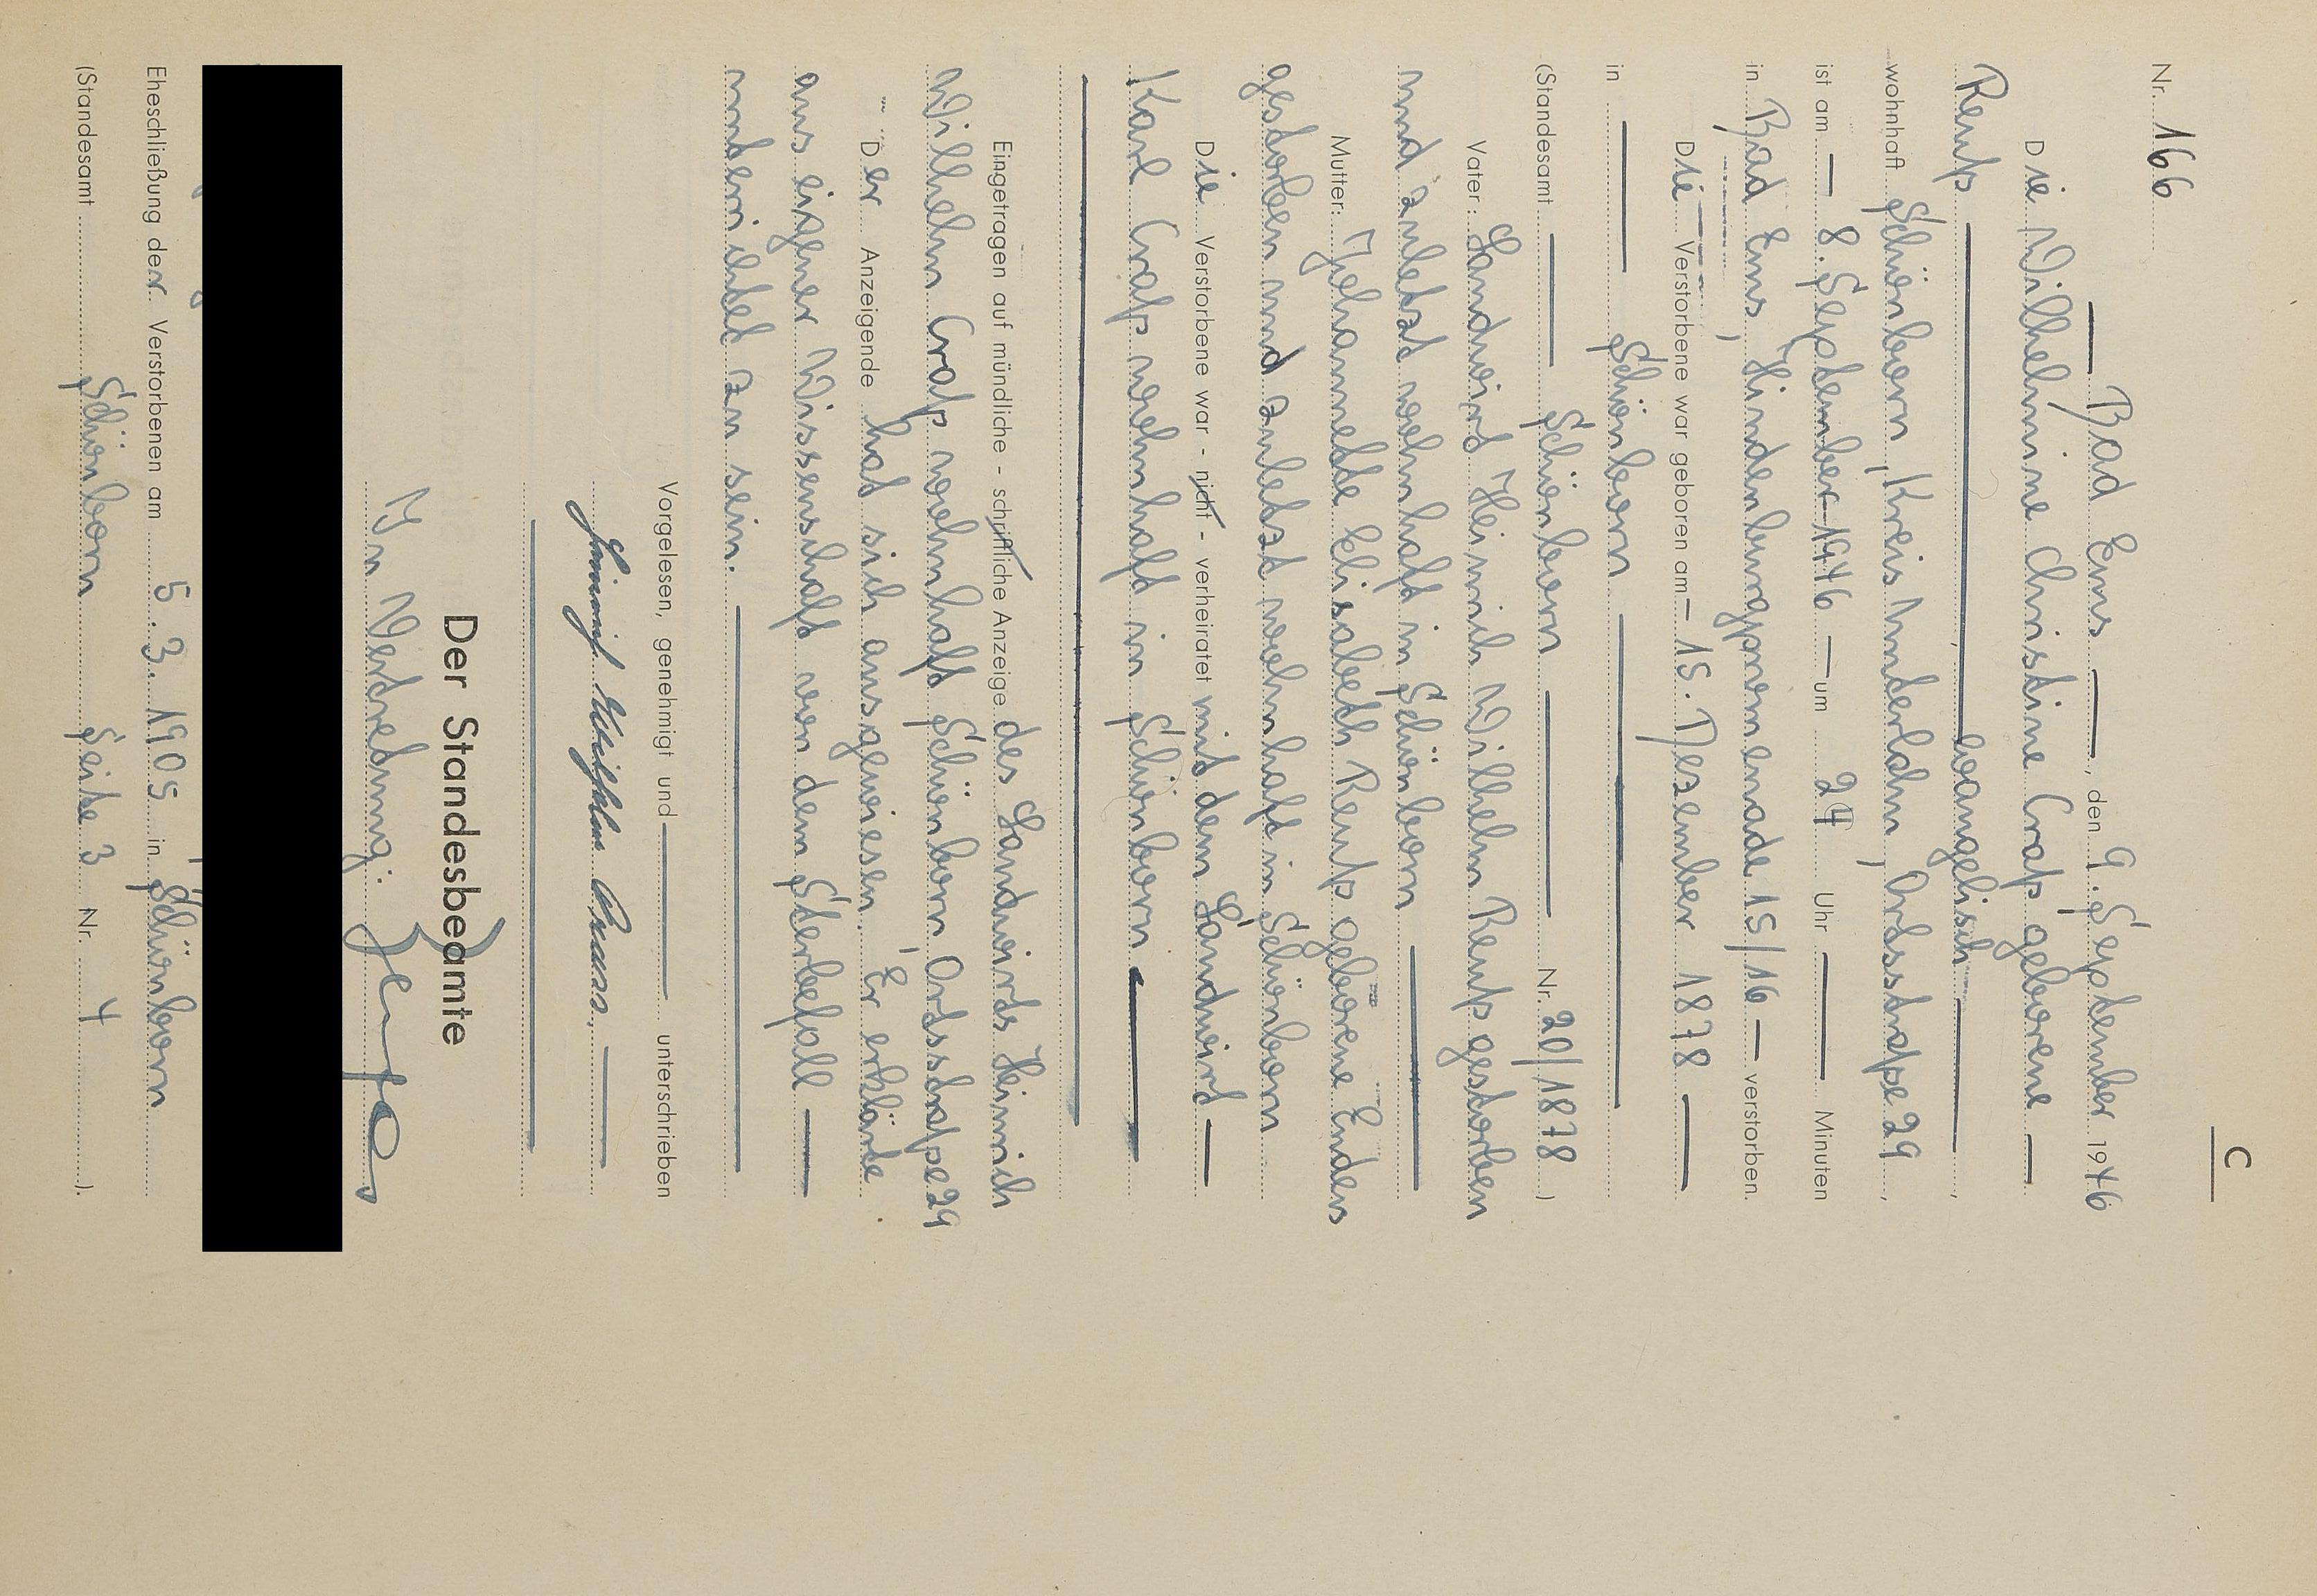 C
Nr. 166
Bad Ems, den 9. September 1946
Die Wilhelmine Christine Crass geborene
Reuss
evangelisch,
wohnhaft Schönborn, Kreis Unterlahn, Ortsstrasse 29,
ist am — 8. September 1946 — um 24 Uhr — Minuten
in Bad Ems, Hindenburgpromenade 15/16 — verstorben.
Die Verstorbene war geboren am — 15. Dezember 1878 —
in — Schönborn —
(Standesamt — Schönborn — Nr. 20/1878)
Vater: Landwirt Heinrich Wilhelm Reuss gestorben
und zuletzt wohnhaft in Schönborn —
Mutter: Johannette Elisabeth Reuss geborene Enders
gestorben und zuletzt wohnhaft in Schönborn
Die Verstorbene war - nicht - verheiratet mit dem Landwirt —
Karl Crass wohnhaft in Schönborn —
Eingetragen auf mündliche - schriftliche Anzeige des Landwirts Heinrich
Wilhelm Crass wohnhaft Schönborn, Ortsstrasse 29
Der Anzeigende hat sich ausgewiesen. Er erklärte
aus eigener Wissenschaft von dem Sterbefall —
unterrichtet zu sein. —
Vorgelesen, genehmigt und — unterschrieben
Heinrich Wilhelm Crass. —
Der Standesbeamte
In Vertretung:
Eheschließung der Verstorbenen am 5. 3. 1905 in Schönborn
(Standesamt Schönborn Seite 3 Nr. 4).